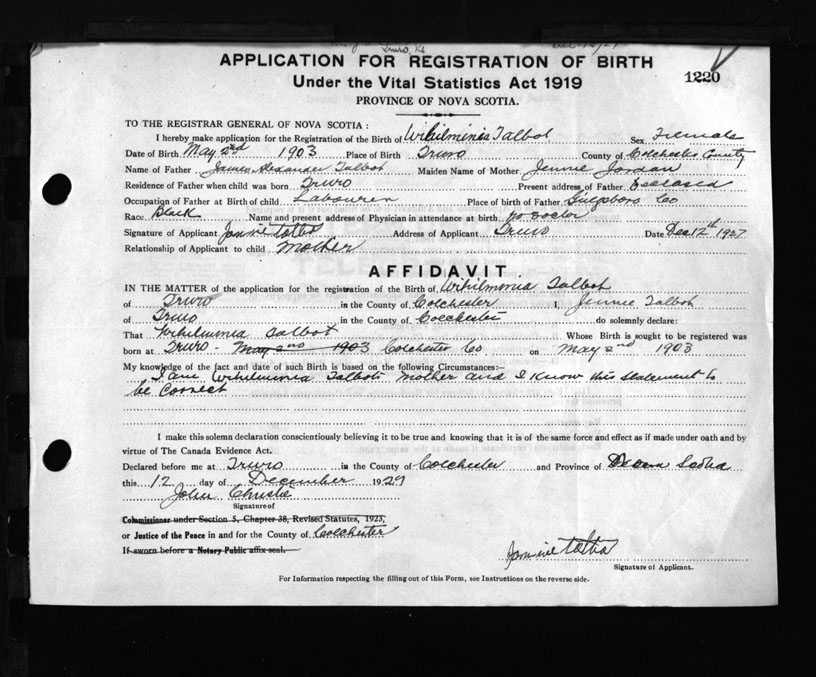 Truro, N.S.
APPLICATION FOR REGISTRATION OF BIRTH
1220
Under the Vital Statistics Act 1919
PROVINCE OF NOVA SCOTIA.
TO THE REGISTRAR GENERAL OF NOVA SCOTIA:
I hereby make application for the Registration of the Birth of Wihilminia Talbot Sex Female
Date of Birth May 2nd 1903 Place of Birth Truro County of Colchester County
Name of Father James Alexander Talbot Maiden Name of Mother Jennie Jordan
Residence of Father when child was born Truro Present address of Father Deceased
Occupation of Father at Birth of child Labourer Place of birth of Father Guysboro Co
Race Black Name and present address of Physician in attendance at birth no Doctor
Signature of Applicant Address of Applicant Truro Date Dec 12th 1927
Relationship of Applicant to child mother
AFFIDAVIT
IN THE MATTER of the application for the registration of the Birth of Wihilmonia Talbot
of Truro in the County of Colchester I, Jennie Talbot
of Truro in the County of Colchester do solemnly declare:
That Wihelmonia Talbot Whose Birth is sought to be registered was
born at Truro - May 2nd 1903 Colchester Co on May 2nd 1903
My knowledge of the fact and date of such Birth is based on the following Circumstances:—
I am Wihelmonia Talbots mother and I know this statement to
be correct
I make this solemn declaration conscientiously believing it to be true and knowing that it is of the same force and effect as if made under oath and by
virtue of The Canada Evidence Act.
Declared before me at Truro in the County of Colchester and Province of Nova Scotia
this 12 day of December 1927
John Christie
Signature of
Commissioner under Section 5, Chapter 38, Revised Statutes, 1923,
or Justice of the Peace in and for the County of Colchester
If sworn before a Notary Public affix seal.
Signature of Applicant.
For Information respecting the filling out of this Form, see Instructions on the reverse side.